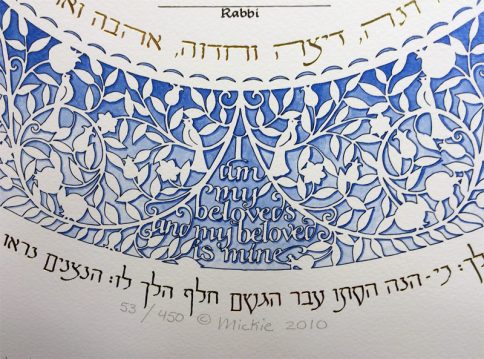 Rabbi
רנה, דיצה וחדוה, אהבה
i am
my
beloved's
and my beloved
is mine
לך: כי-הנה הסתו עבר הגשם חלף הלך לו: הנצנים נראו
53 / 450 © Mickie 2010